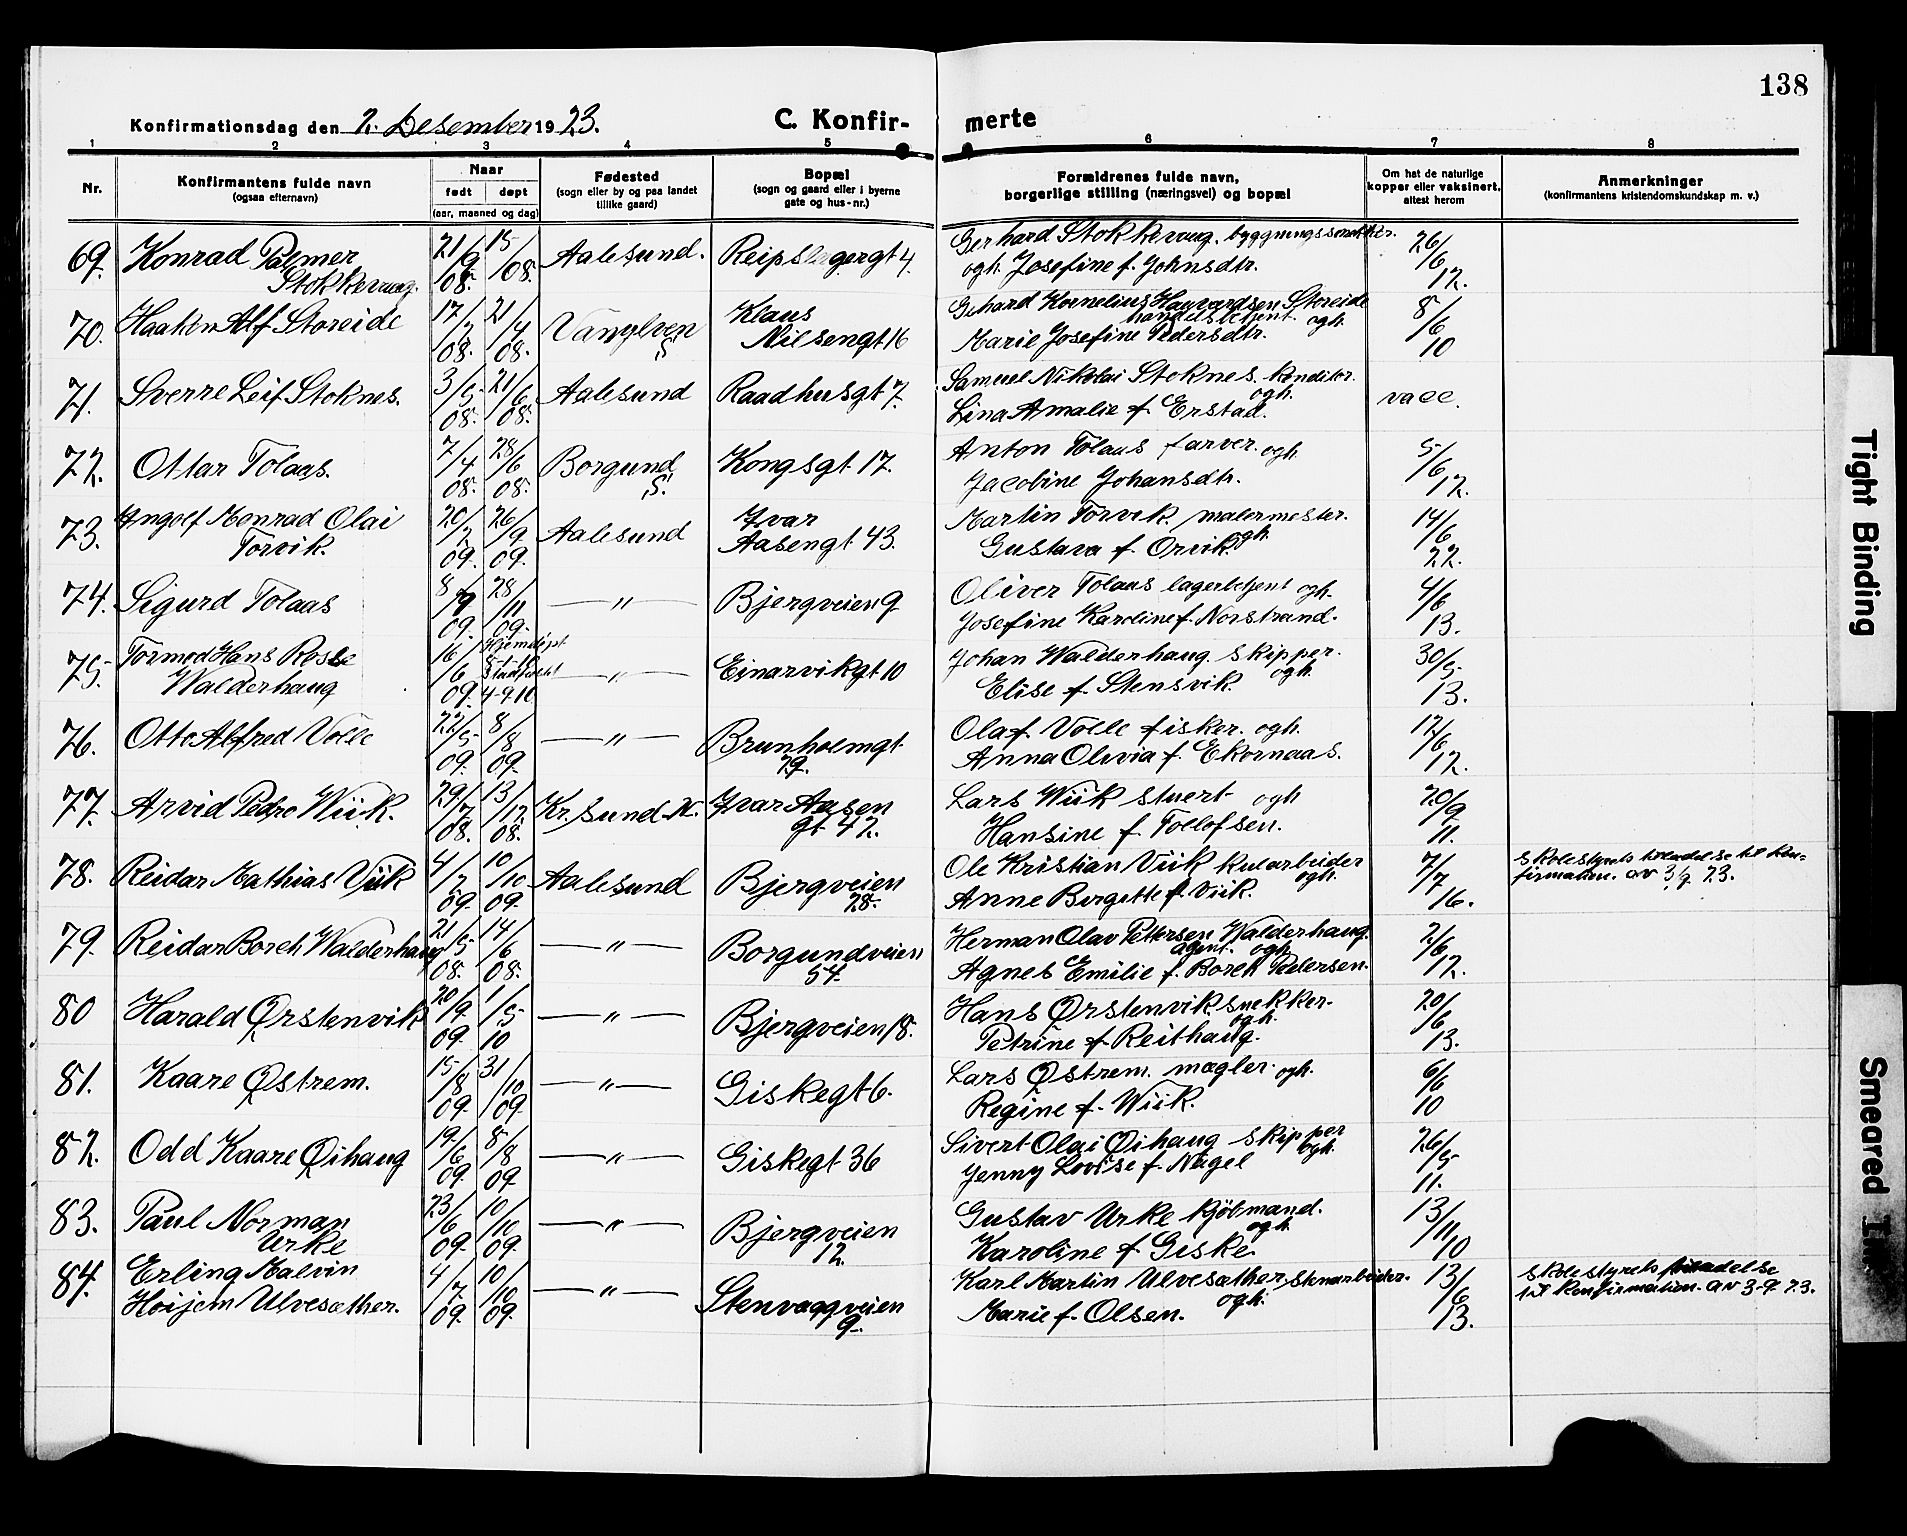 138
Konfirmationsdag den 2. Desember 1923.
C. Konfir-merte
1 2 3 4 5 6 7 8
Nr.
Konfirmantens fulde navn
(ogsaa efternavn)
Naar
født døpt
(aar, maaned og dag)
Fødested
(sogn eller by og paa landet
tillike gaard)
Bopæl
(sogn og gaard eller i byerne
gate og hus-nr.)
Forældrenes fulde navn,
borgerlige stilling (næringsvei) og bopæl
Om hat de naturlige
kopper eller vaksinert,
attest herom
Anmerkninger
(konfirmantens kristendomskundskap m. v.)
69. Konrad Palmer Stokkevaag. 21/9 08. 15/ 08. Aalesund. Reipslagergt 4.
Gerhard Stokkevaag. byggningssnekker.
ogh. Josefine f. Johnsdtr. 26/6 12.
70. Haakon Alf Storeide 17/2 08. 21/4 08. Vanylven S. Klaus
Nilsengt 16
Gerhard Kornelius Haavardsen Storeide
handelsbetjent. ogh.
Marie Josefine Pedersdtr. 8/6 10
71. Sverre Leif Stoknes. 3/5 08. 21/6 08. Aalesund Raadhusgt 7.
Samuel Nikolai Stoknes. konditor.
ogh.
Lina Amalie f. Erstad. vacc.
72. Ottar Tolaas. 7/4 08. 28/6 08. Borgund S. Kongsgt 17.
Anton Tolaas farver. ogh.
Jacobine Johansdtr. 5/6 12.
73. Ingolf Monrad Olai
Torvik. 20/2 09. 26/9 09. Aalesund Ivar
Aasengt 43.
Martin Torvik. malermester.
ogh.
Gustava f. Orvik. 14/6 22.
74. Sigurd Tolaas 8/9 09. 28/11 09. —"— Bjergveien 9
Oliver Tolaas lagerbetjent ogh.
Josefine Karoline f. Norstrand. 4/6 13.
75. Tormod Hans Rosse
Walderhaug 16/6 09. Hjemdøpt
Stadfæst
4-9-10 —"— Einarvikgt 10
Johan Walderhaug. skipper.
ogh.
Elise f. Stensvik. 30/5 13.
76. Otto Alfred Volle 22/5 09. 8/8 09. —"— Brunholmgt
29.
Olaf Volle fisker. ogh.
Anna Olivia f. Ekornaas. 12/6 12.
77. Arvid Pedro Wiik. 29/7 08. 13/12 08. Kr.sund N. Ivar Aasen
gt. 42.
Lars Wiik stuert ogh
Hansine f. Tollofsen. 20/9 11.
78. Reidar Mathias Viik 4/2 09. 10/10 09. Aalesund Bjergveien
28.
Ole Kristian Viik kularbeider
ogh.
Anne Birgitte f. Viik. 7/7 16.
skolestyrets tilladelse til kon-
firmation. av 3/9 23.
79. Reidar Borch Walderhaug 21/5 08. 14/6 08. —"— Borgundveien
54.
Herman Olav Pettersen Walderhaug.
agent. ogh.
Agnes Emilie f. Borch Pedersen. 2/6 12.
80 Harald Ørstenvik 20/9 09. 1/5 10 —"— Bjergveien 18.
Hans Ørstenvik snekker.
ogh.
Petrine f. Reithaug. 20/6 13.
81. Kaare Østrem. 15/8 09. 31/10 09. —"— Giskegt 6.
Lars Østrem. mægler. ogh.
Regine f. Wiik. 6/6 10
82. Odd Kaare Øihaug 19/6 09. 8/8 09. —"— Giskegt 36
Sivert Olai Øihaug skipper
ogh.
Jenny Lovise f. Nagel 26/5 11.
83. Paul Norman
Urke 23/6 09. 10/10 09. —"— Bjergveien
12.
Gustav Urke kjøbmand.
ogh.
Karoline f. Giske. 13/11 10
84. Erling Malvin
Høijem Ulvesæther. 4/7 09. 10/10 09. —"— Stenvaagveien
9.
Karl Martin Ulvesæther, stenarbeider.
ogh.
Marie f. Olsen. 13/6 13.
skolestyrets tilladelse
til konfirmation. av 3-9 23.
Tight Binding
Smeared